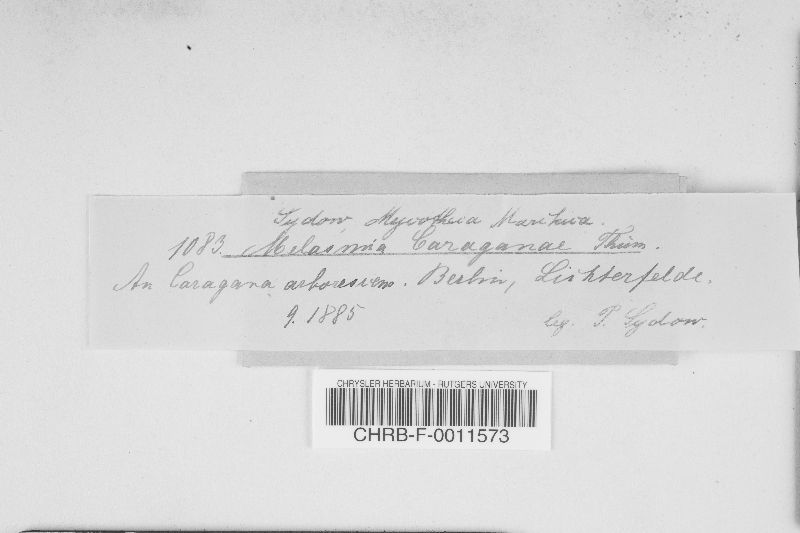 Sydow, Mycotheca Marchica.
1083. Melasmia Caraganae Thüm.
An Caragana arborescens. Berlin, Lichterfelde.
9. 1885
leg. P. Sydow.
CHRYSLER HERBARIUM - RUTGERS UNIVERSITY
CHRB-F-0011573